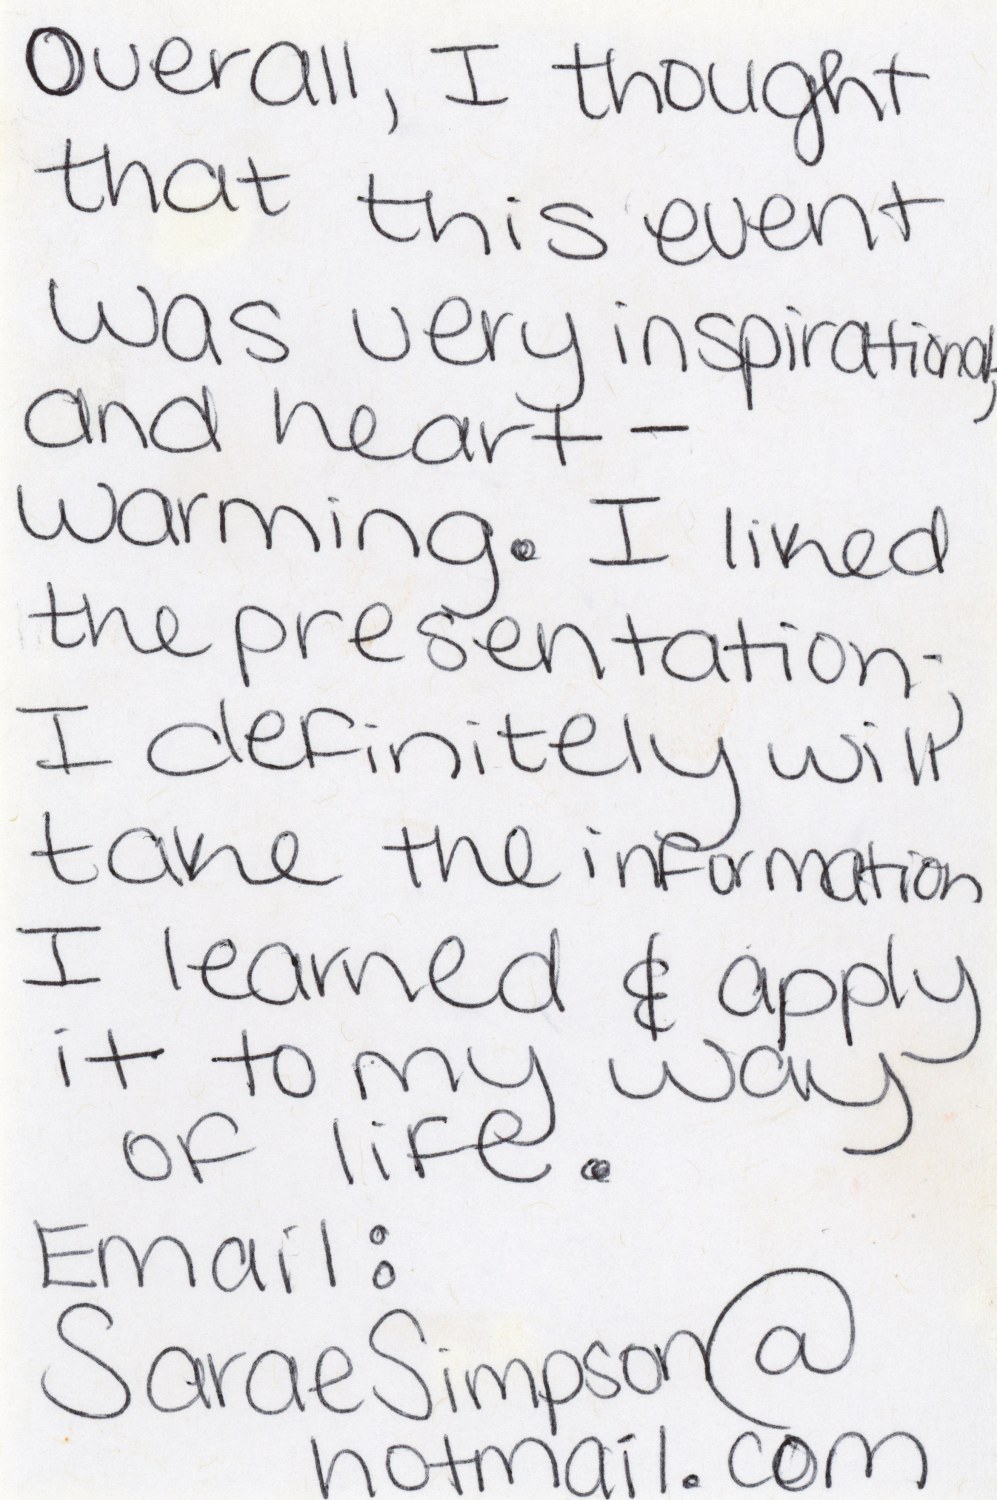 Overall, I thought
that this event
was very inspirational,
and heart-
warming. I liked
the presentation;
I definitely will
take the information
I learned & apply
it to my way
of life.
Email:
SaraeSimpson@
hotmail.com